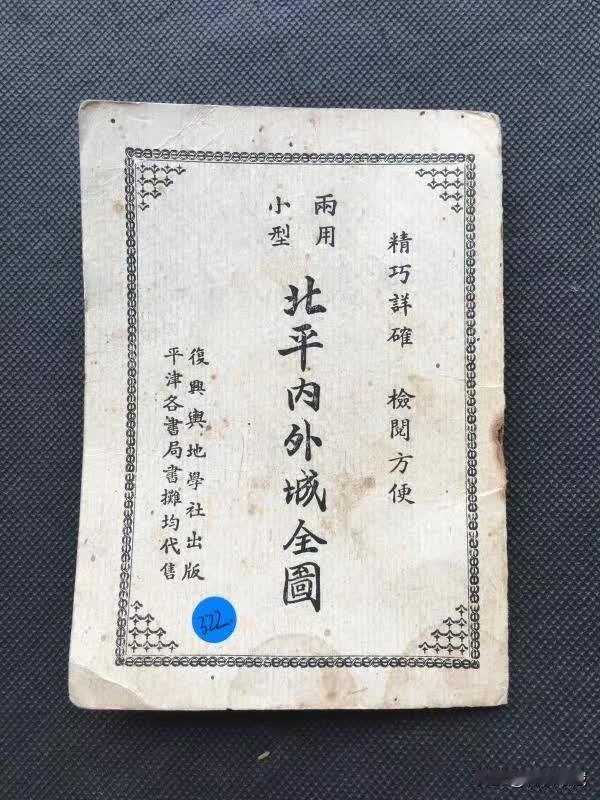 精巧詳確 檢閱方便
兩用
小型
北平內外城全圖
復興輿地學社出版
平津各書局書攤均代售
322